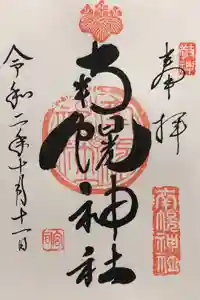 奉拝
南幌神社
南幌神社
令和二年十月十一日